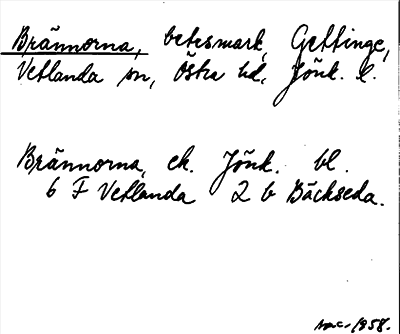 Brännorna, betesmark, Gettinge,
Vetlanda sn, Östra hd, Jönk. l.
Brännorna, ek. Jönk. bl.
6 F Vetlanda 2 b Bäckseda.
1958.